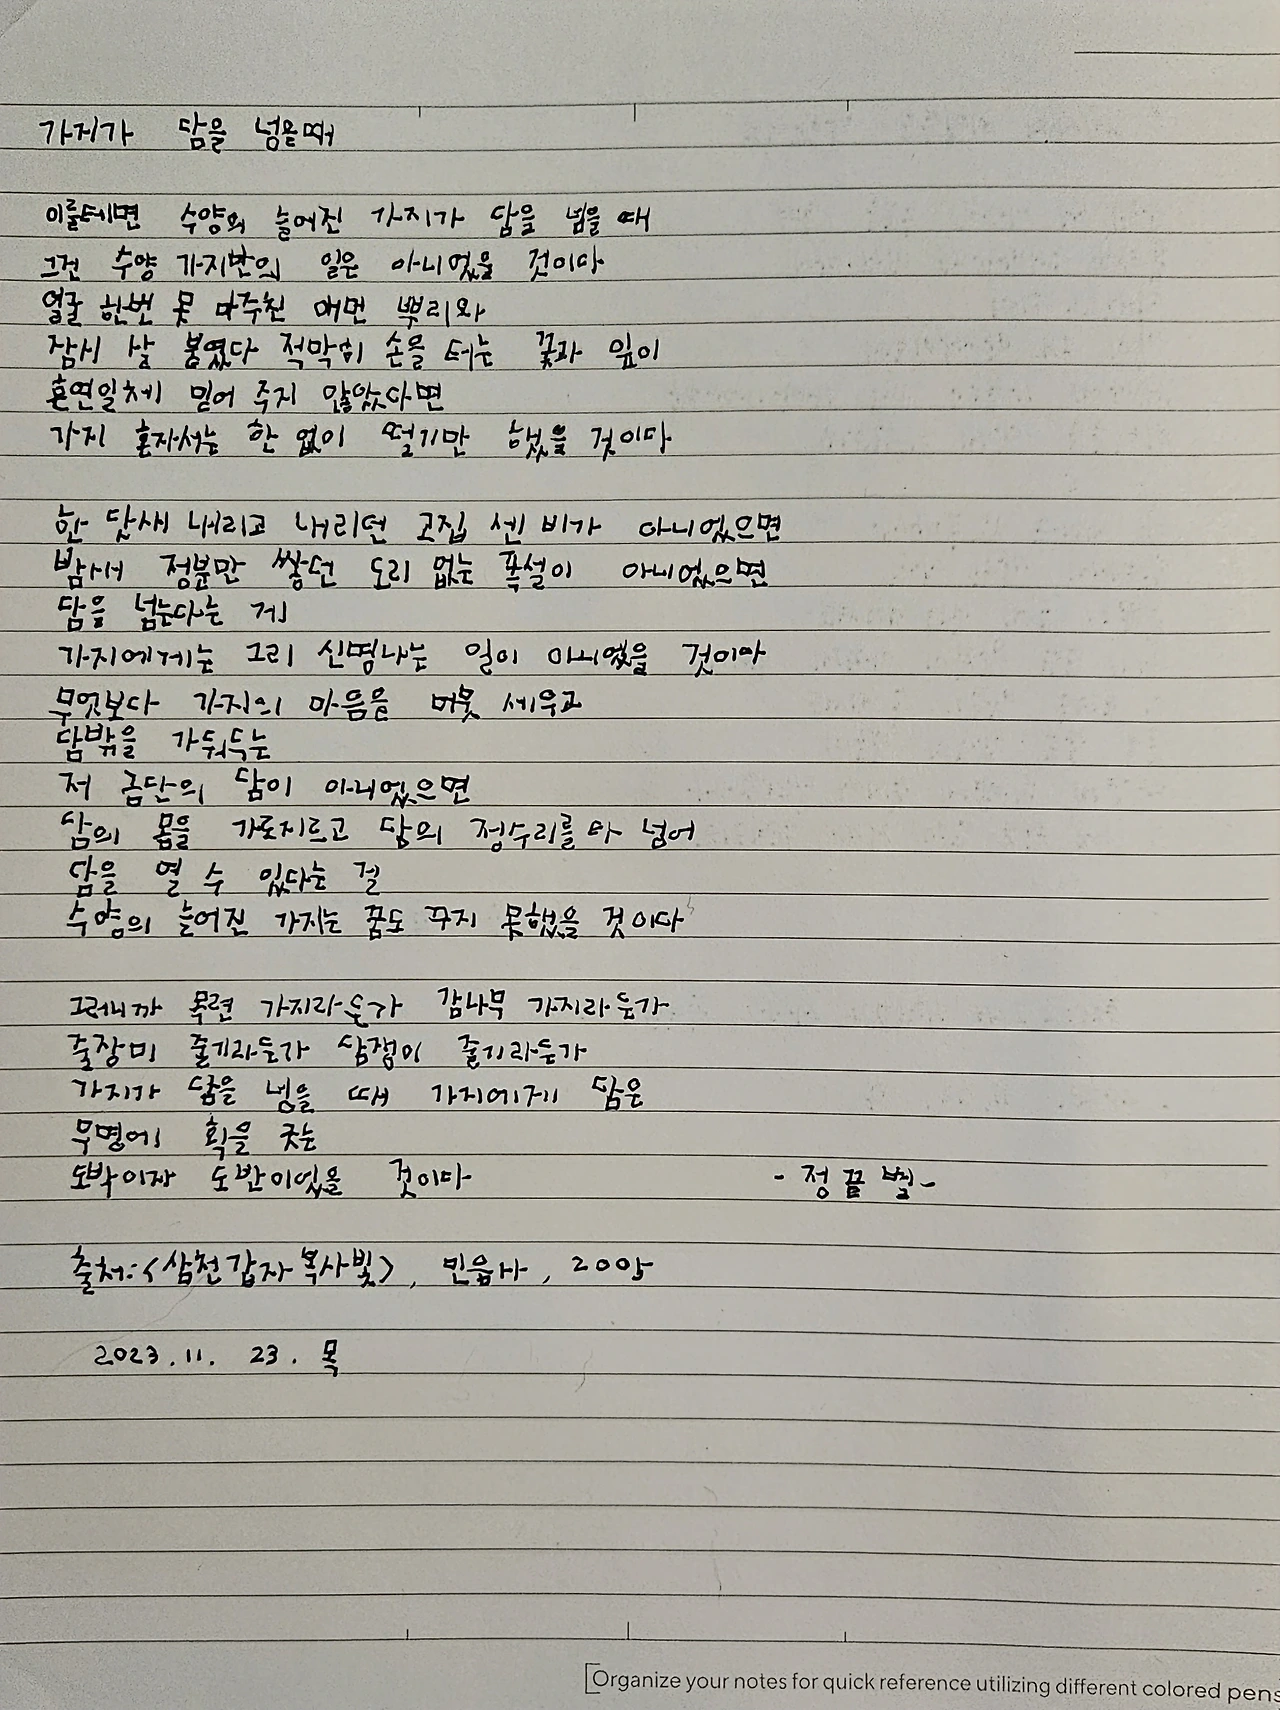 가지가 담을 넘을때
이를테면 수양의 늘어진 가지가 담을 넘을 때
그건 수양 가지만의 일은 아니었을 것이다
얼굴 한번 못 마주친 애먼 뿌리와
잠시 살 붙였다 적막히 손을 터는 꽃과 잎이
혼연일체 믿어 주지 않았다면
가지 혼자서는 한없이 떨기만 했을 것이다
한 닷새 내리고 내리던 고집 센 비가 아니었으면
밤새 정분만 쌓던 도리 없는 폭설이 아니었으면
담을 넘는다는 게
가지에게는 그리 신명나는 일이 아니었을 것이다
무엇보다 가지의 마음을 머뭇 세우고
담밖을 가둬두는
저 금단의 담이 아니었으면
담의 몸을 가로지르고 담의 정수리를 타 넘어
담을 열 수 있다는 걸
수양의 늘어진 가지는 꿈도 꾸지 못했을 것이다
그러니까 목련 가지라든가 감나무 가지라든가
줄장미 줄기라든가 담쟁이 줄기라든가
가지가 담을 넘을 때 가지에게 담은
무명에 획을 긋는
도박이자 도반이었을 것이다 - 정끝별 -
출처:<삼천갑자 복사빛>, 민음사, 2005
2023.11. 23. 목
[Organize your notes for quick reference utilizing different colored pens